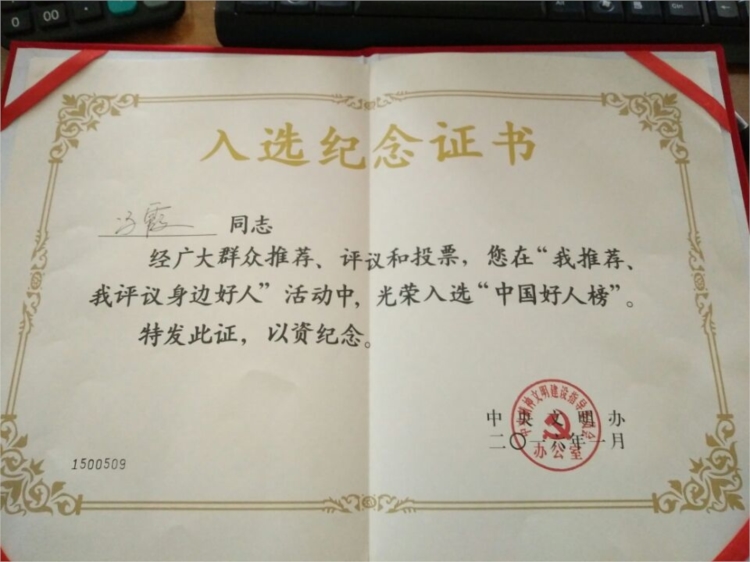 00
Alt
入选纪念证书
冯霞 同志
经广大群众推荐、评议和投票，您在“我推荐、
我评议身边好人”活动中，光荣入选“中国好人榜”。
特发此证，以资纪念。
中央文明办
二〇一六年一月
中央精神文明建设指导委员会
办公室
1500509